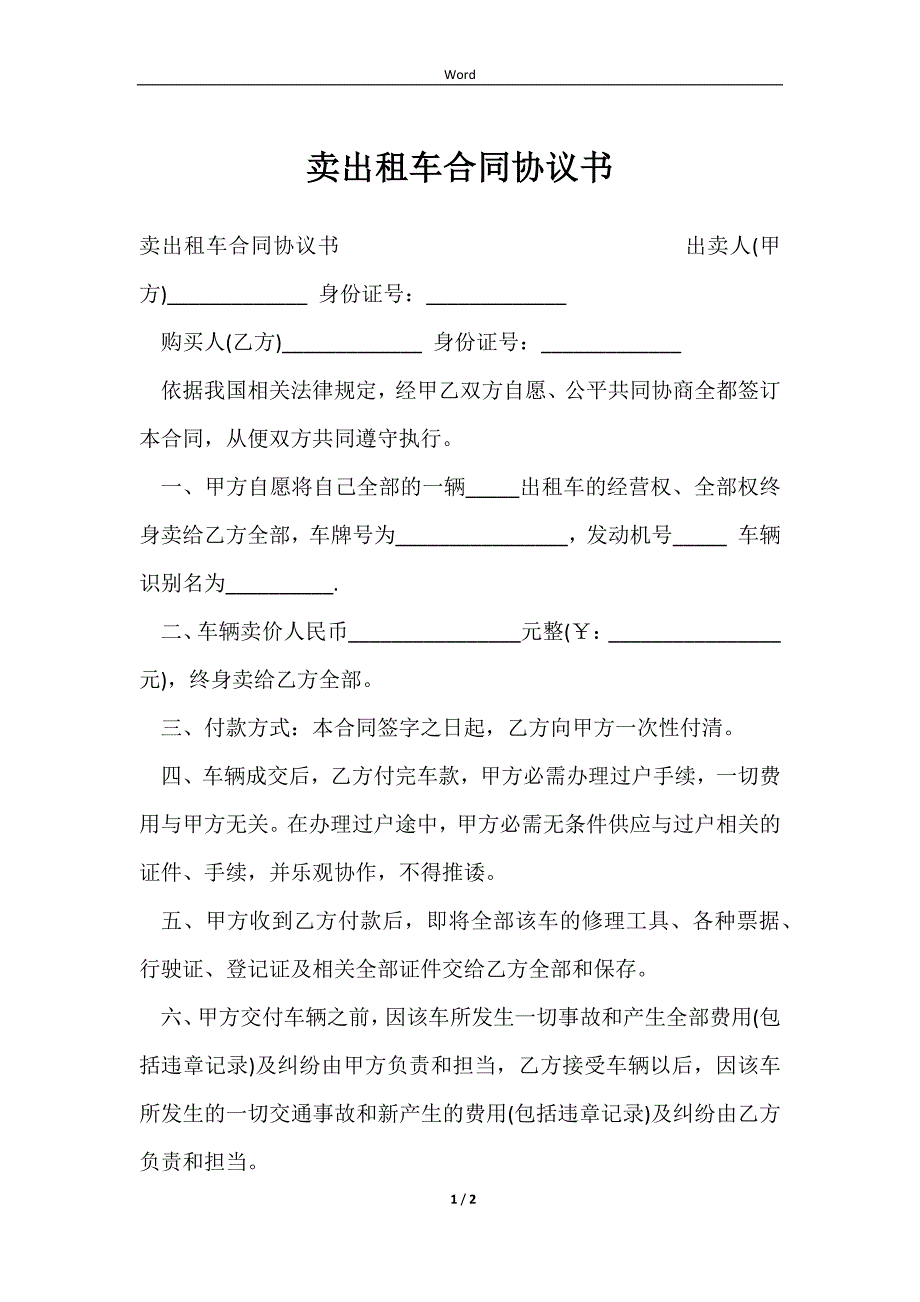 Word
卖出租车合同协议书
卖出租车合同协议书 出卖人(甲
方)_____________ 身份证号：_____________
购买人(乙方)_____________ 身份证号：_____________
依据我国相关法律规定，经甲乙双方自愿、公平共同协商全都签订
本合同，从便双方共同遵守执行。
一、甲方自愿将自己全部的一辆_____出租车的经营权、全部权终
身卖给乙方全部，车牌号为________________，发动机号_____ 车辆
识别名为__________.
二、车辆卖价人民币________________元整(￥：________________
元)，终身卖给乙方全部。
三、付款方式：本合同签字之日起，乙方向甲方一次性付清。
四、车辆成交后，乙方付完车款，甲方必需办理过户手续，一切费
用与甲方无关。在办理过户途中，甲方必需无条件供应与过户相关的
证件、手续，并乐观协作，不得推诿。
五、甲方收到乙方付款后，即将全部该车的修理工具、各种票据、
行驶证、登记证及相关全部证件交给乙方全部和保存。
六、甲方交付车辆之前，因该车所发生一切事故和产生全部费用(包
括违章记录)及纠纷由甲方负责和担当，乙方接受车辆以后，因该车
所发生的一切交通事故和新产生的费用(包括违章记录)及纠纷由乙方
负责和担当。
1 / 2